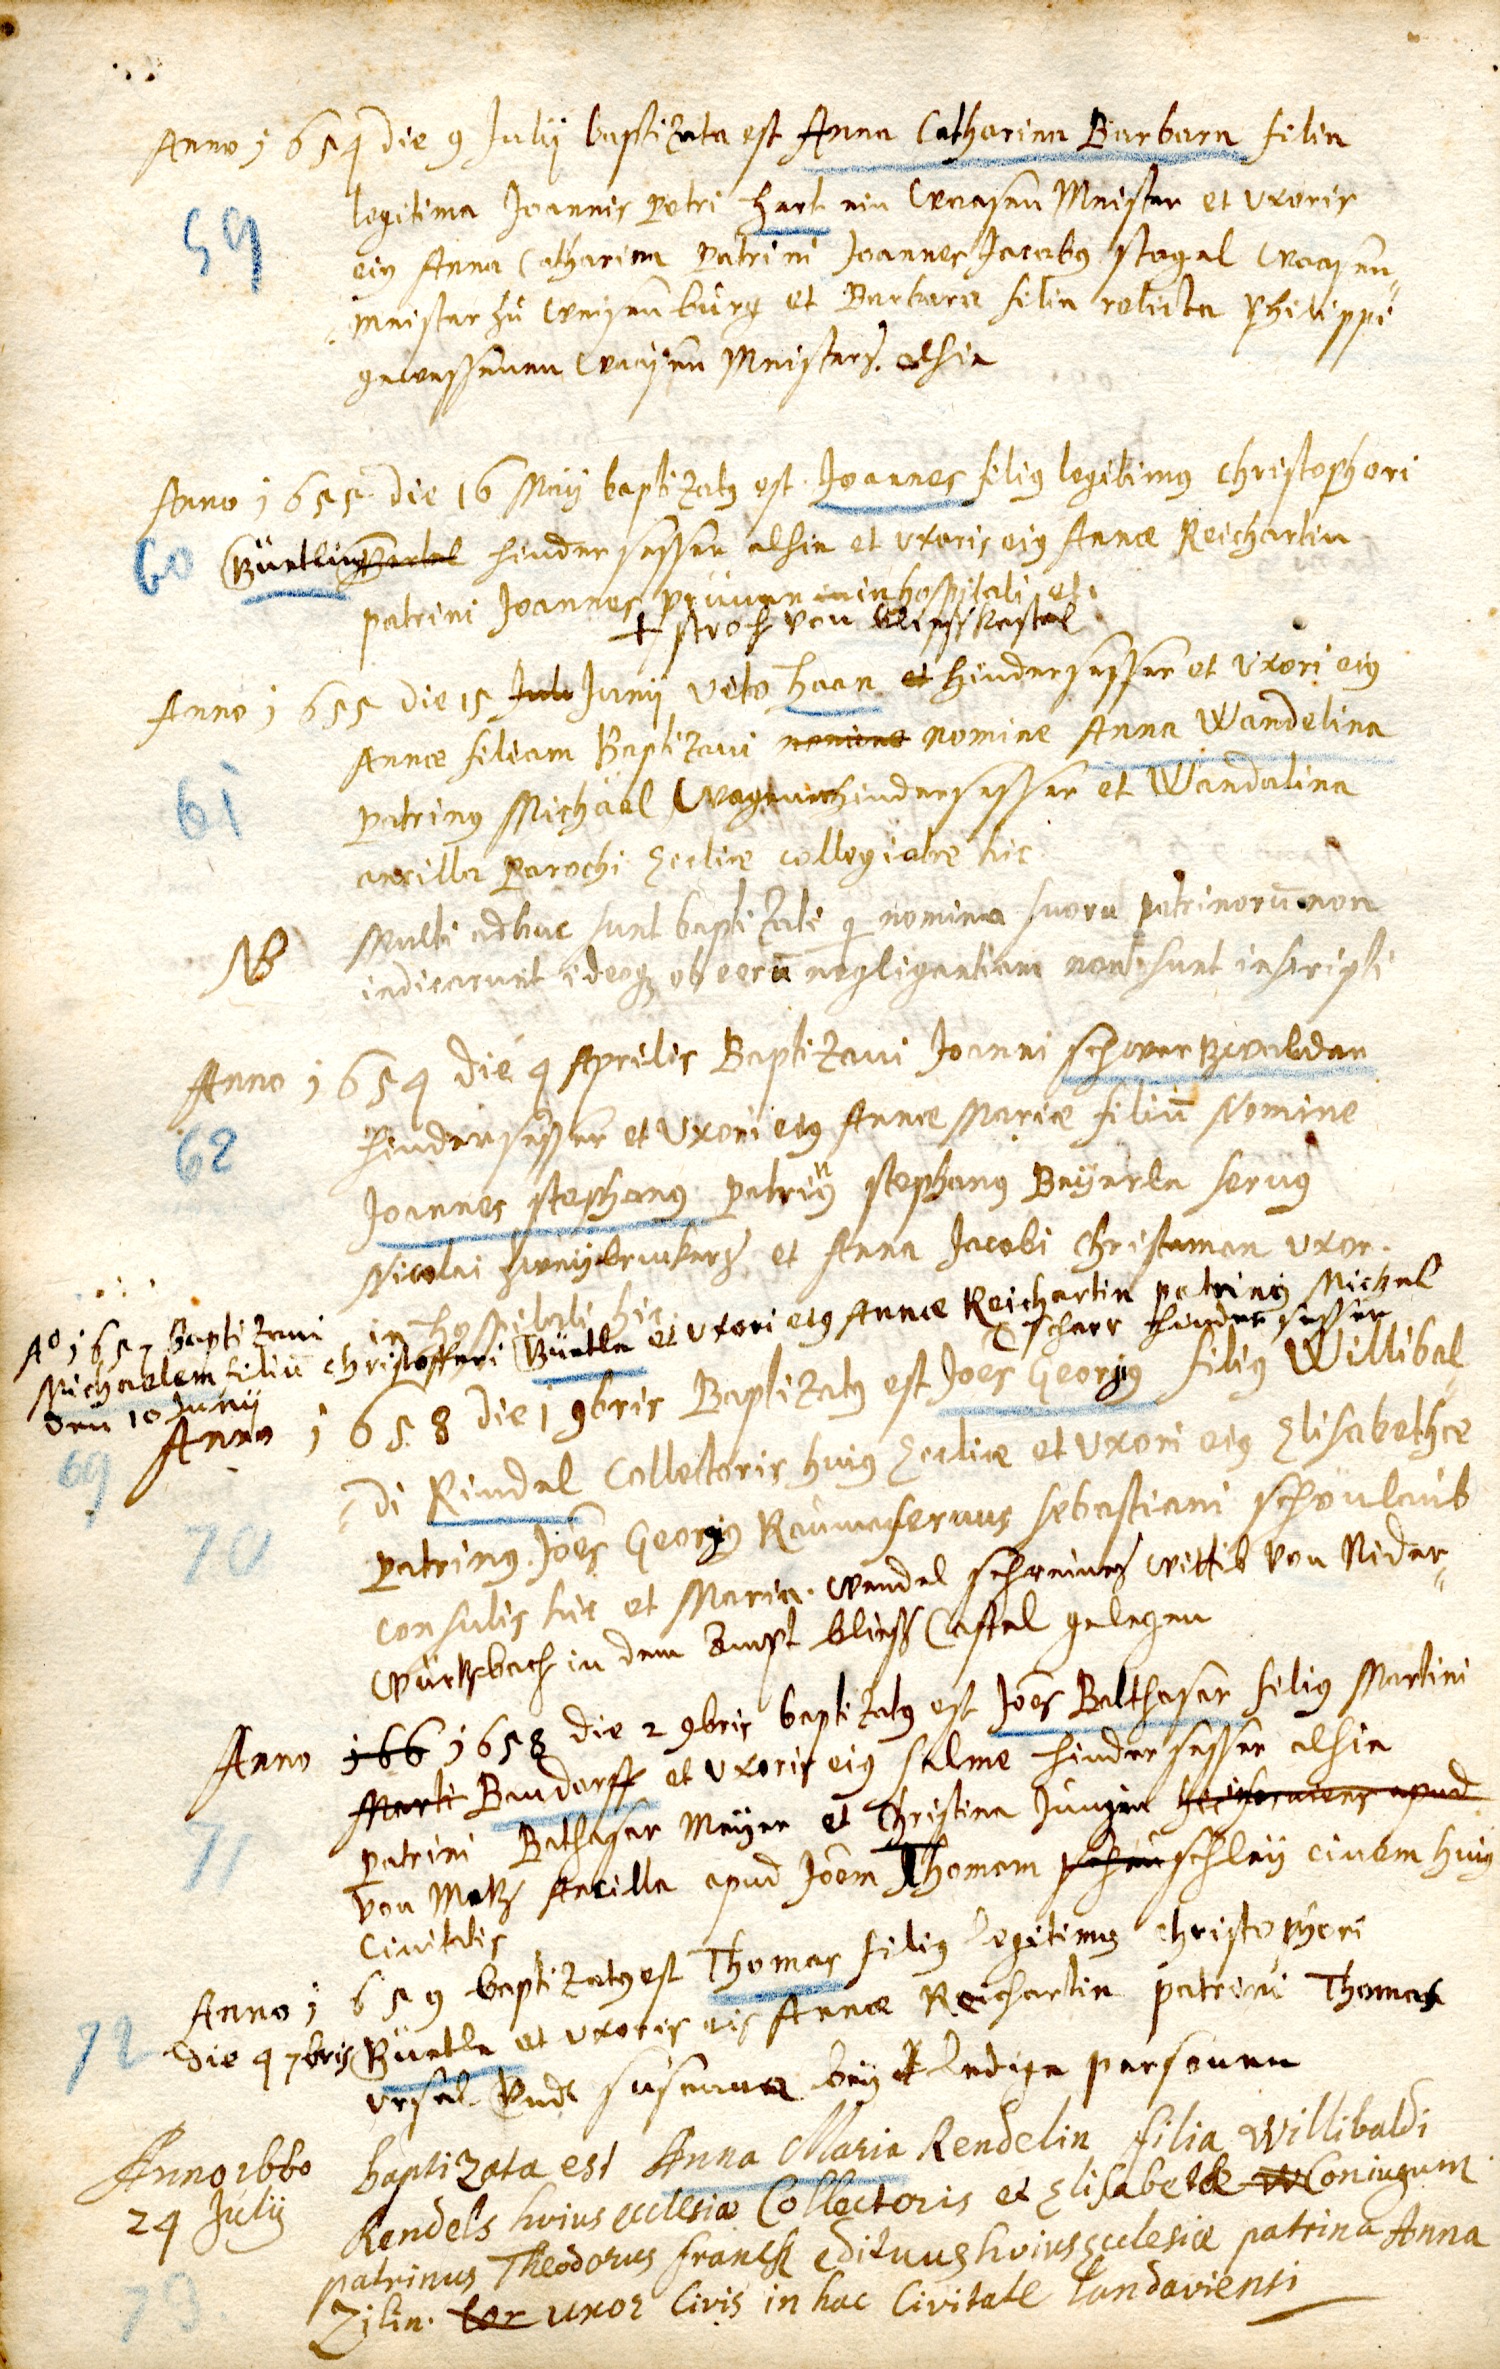 Anno 1654 die 9 Julij baptizata est Anna Catharina Barbara filia
59
legitima Joannis Petri Hart ein Waasen Meister et uxoris
eiꝰ Anna Catharina Patrini Joannes Jacobꝰ Stogel Waasen-
meister zu Weissenburg et Barbara filia relicta Philippi
gewessenen Waasen Meisters. alhie
Anno 1655 die 16 Maij baptizatꝰ est Joannes filiꝰ legitimꝰ Christophori
60 Büetlin hindersesser alhie et uxoris eiꝰ Annæ Reichartin
patrini Joannes in hospitali et
+ stroh von Bliesskastel
Anno 1655 die 15 Julii Junij Vito Haan et hindersesser et uxori eiꝰ
Annæ filiam Baptizavi nomine nomine Anna Wandelina
61
patrinꝰ Michäel Wagner hindersesser et Wandalina
ancilla Parochi Eccliæ collegiatæ hic
NB Multi adhuc sunt baptizati q nomina suorū patrinorū non
indicarunt ideoqꝫ ob eorū negligentiam non sunt inscripti
Anno 1654 die 4 Aprilis Baptizavi Joanni Schwertzwalder
62
hindersesser et Uxori eiꝰ Annæ Mariæ filiū Nomine
Joannes Stephanꝰ patrinꝰ Stephanꝰ Beyerle servꝰ
Nicolai Zweybruckers et Anna Jacobi Christaman uxor.
in hospitali hic
Aº 1657 Baptizavi
Michaelem filiū Christofferi Büetle et uxori eiꝰ Annæ Reichartin patrinꝰ Michel
scharr hindersesser
den 10 Junij
69
Anno 1658 die 1 9bris Baptizatꝰ est Joēs Georgiꝰ filiꝰ Willibal-
di Rindel Collectoris huiꝰ Eccliæ et Uxori eiꝰ Elisabethæ
70
patrinꝰ. Joēs Georgiꝰ servus Sebastiani Schönlaub
Consulis hic et Maria. Wendel schreiners Wittib von Nider-
Würtzbach in dem Ampt Bliess Castel gelegen
Anno 166 1658 die 2 9bris baptizatꝰ est Joēs Balthasar filiꝰ Martini
Marti Bendorff et uxoris eiꝰ Salme hindersesser alhie
71
patrini Bathasar Meyer et Christina Jungin apud
von Metz Ancilla apud Joēm Thomam schleij civem huiꝰ
Civitatis
Anno 1659 baptizatꝰ est Thomas filiꝰ legitimꝰ Christophori
72 die 4 7bris Büetle et uxoris eiꝰ Annæ Reichartin patrini Thomas
Ursel Undt Susanna bey ledige personen
Anno 1660 baptizata est Anna Maria Rendelin filia Willibaldi
24 Julij
Rendels huius ecclesiæ Collectoris et Elisabethæ Coniugum
patrinus Theodorus Franck edituus huius ecclesiæ patrina Anna
73.
Zilin. uxor Civis in hac Civitate Landaviensi